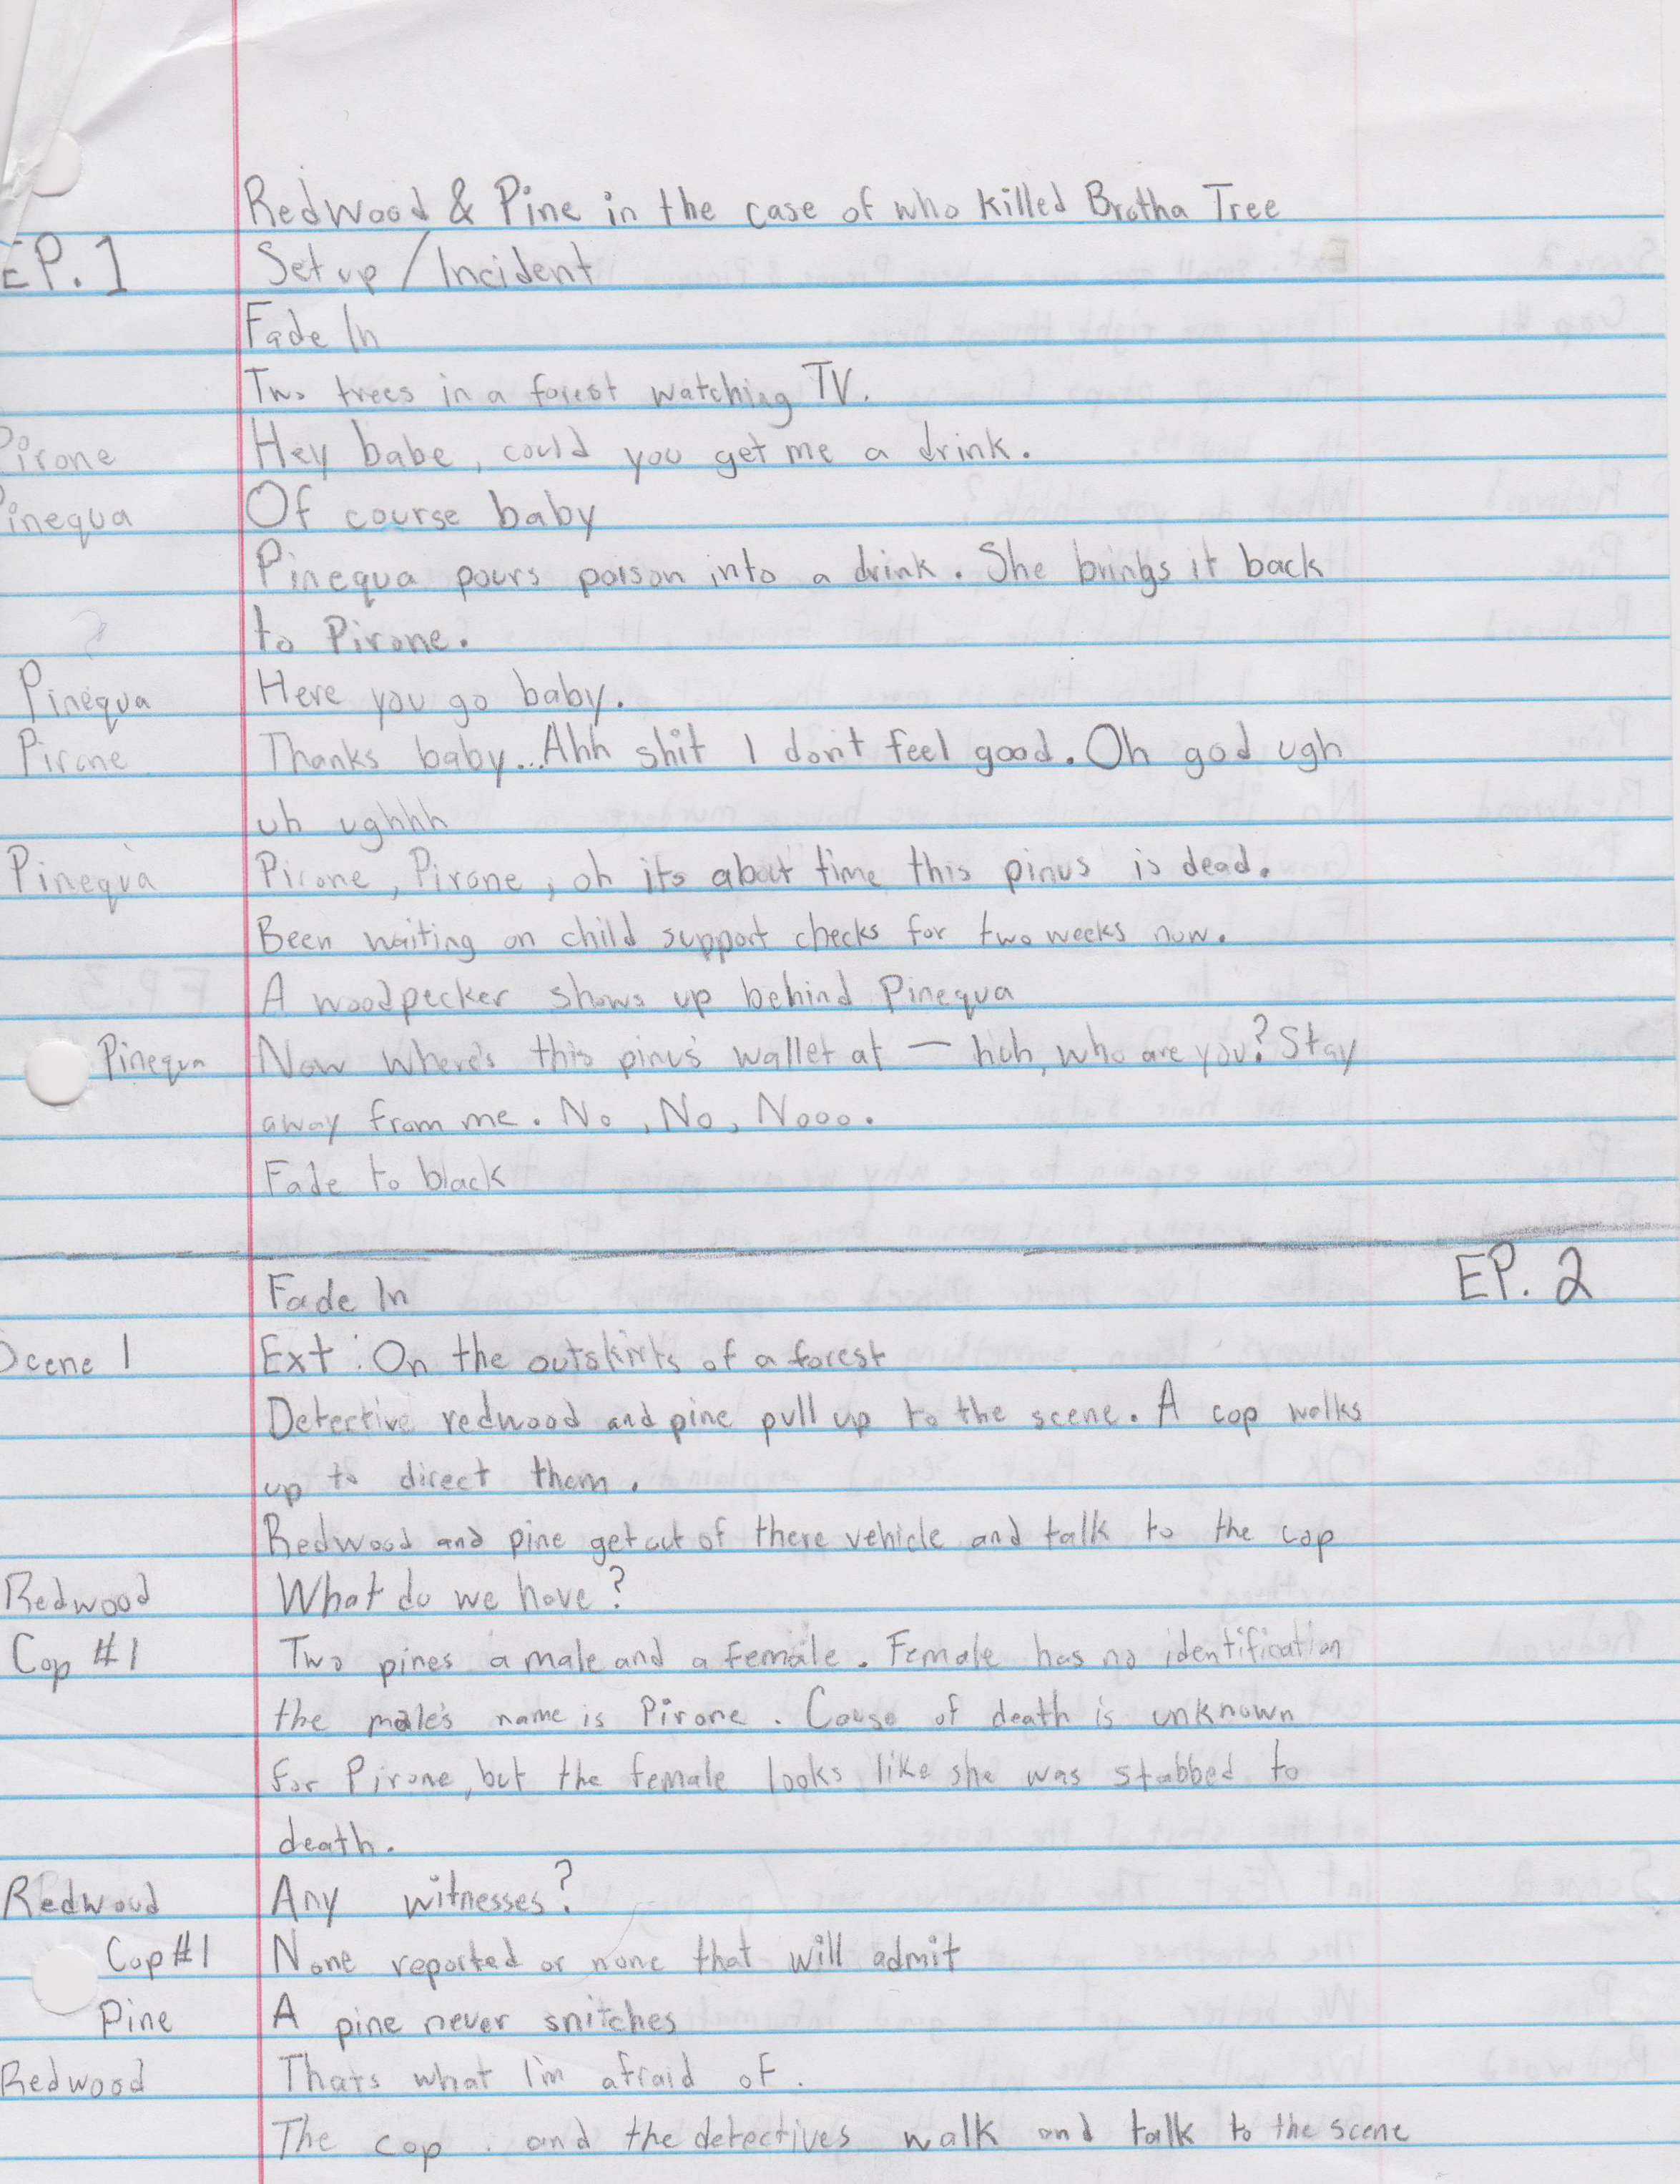 Redwood & Pine in the case of who killed Brotha Tree
EP. 1 Set up / Incident
Fade In
Two trees in a forest watching TV.
Pirone Hey babe, could you get me a drink.
Pinequa Of course baby
Pinequa pours poison into a drink. She brings it back
to Pirone.
Pinequa Here you go baby.
Pirone Thanks baby...Ahh shit I don't feel good. Oh god ugh
uh ughhh
Pinequa Pirone, Pirone, oh its about time this pinus is dead.
Been waiting on child support checks for two weeks now.
A woodpecker shows up behind Pinequa
Pinequa Now where's this pinus' wallet at — huh, who are you? Stay
away from me. No, No, Nooo.
Fade to black
EP. 2
Fade In
Scene 1 Ext: On the outskirts of a forest
Detective redwood and pine pull up to the scene. A cop walks
up to direct them.
Redwood and pine get out of there vehicle and talk to the cop
Redwood What do we have?
Cop #1 Two pines a male and a female. Female has no identification
the male's name is Pirone. Cause of death is unknown
for Pirone, but the female looks like she was stabbed to
death.
Redwood Any witnesses?
Cop #1 None reported or none that will admit
Pine A pine never snitches
Redwood Thats what I'm afraid of.
The cop . and the detectives walk and talk to the scene